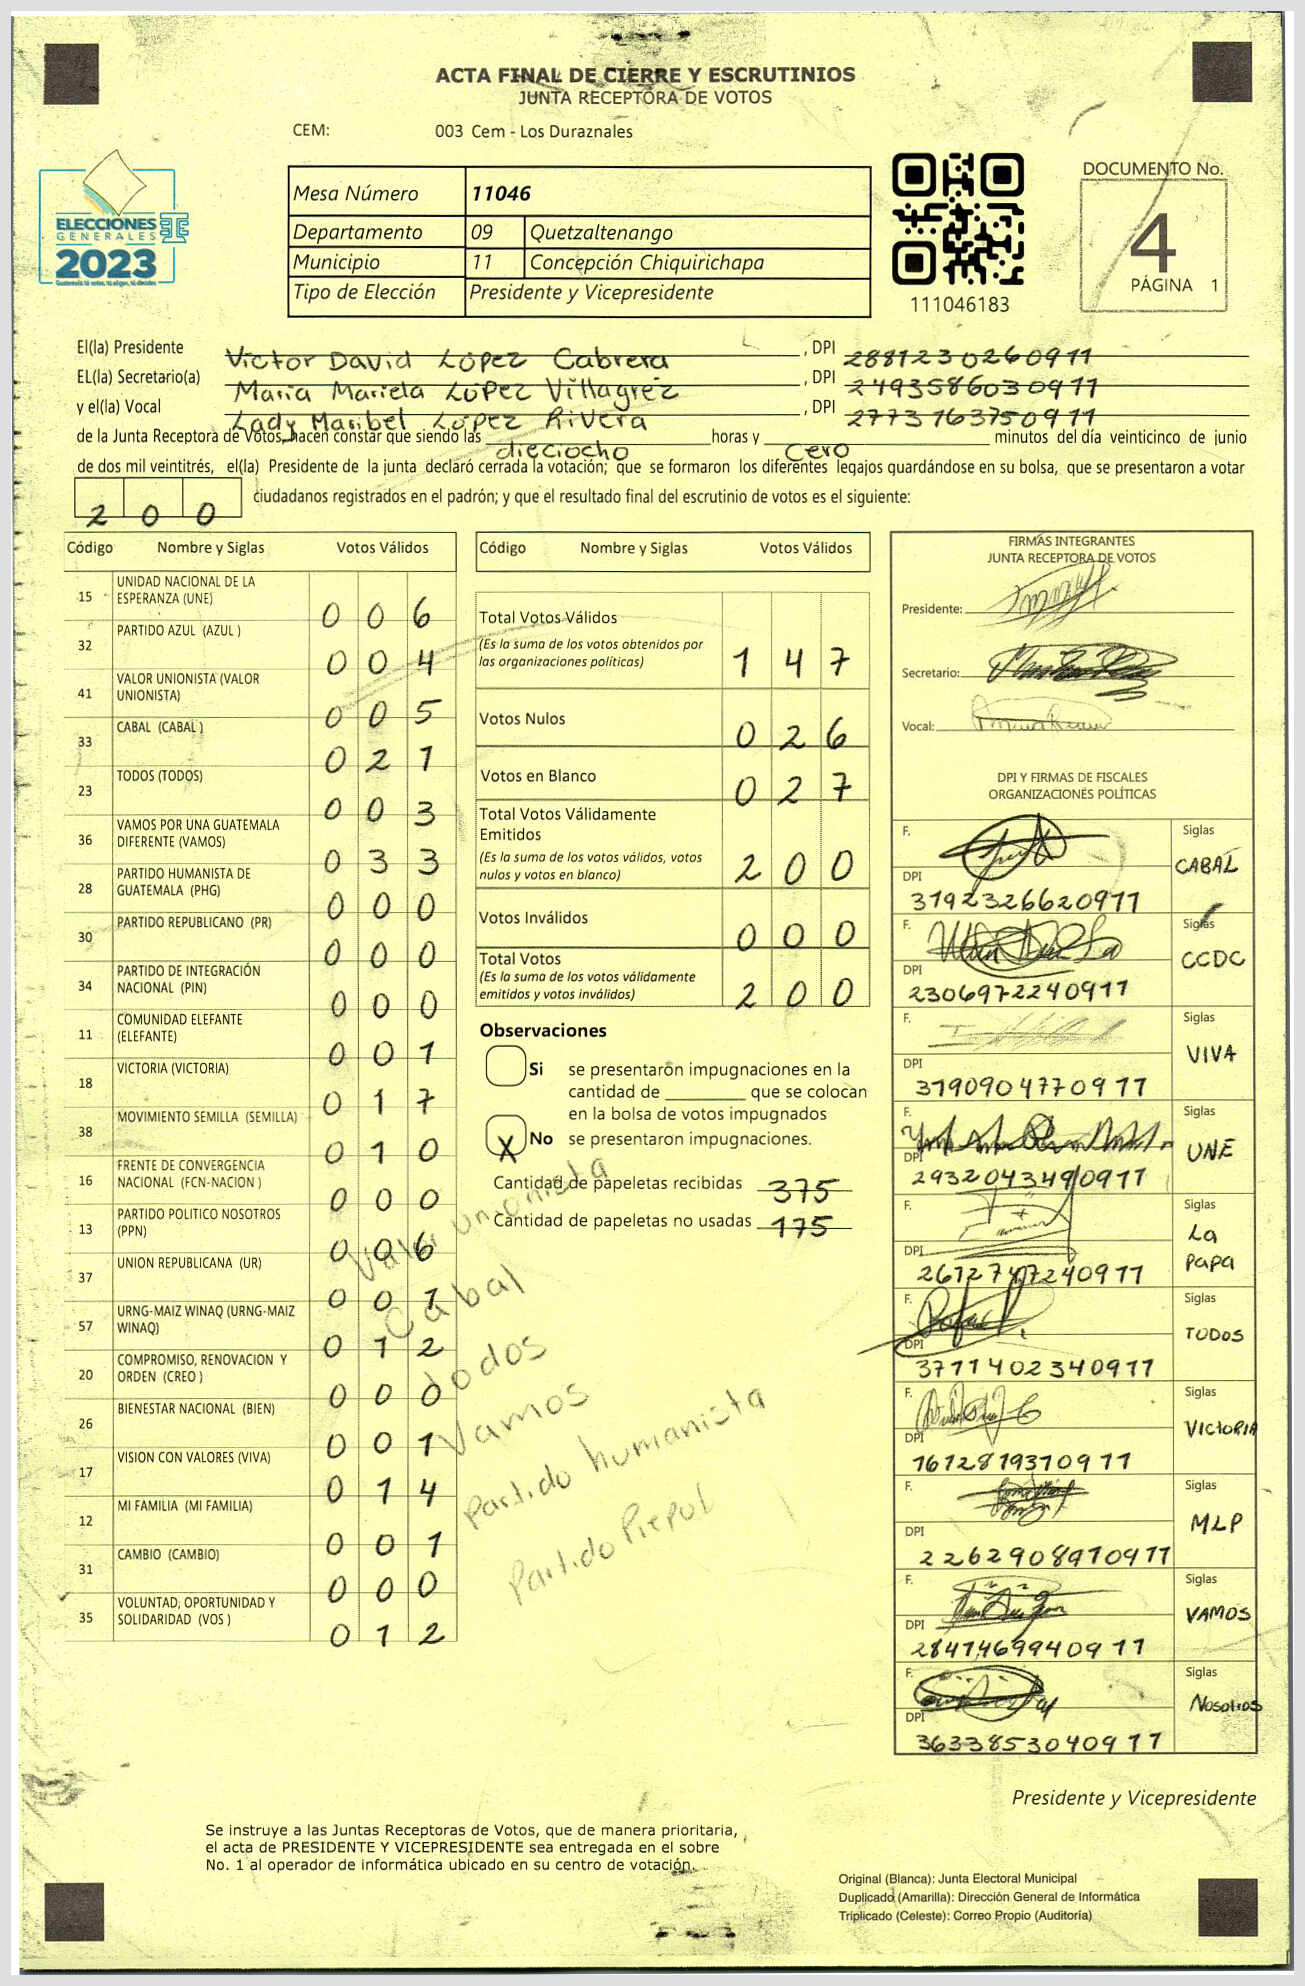 ACTA FINAL DE CIERRE Y ESCRUTINIOS
JUNTA RECEPTORA DE VOTOS
CEM: 003 Cem - Los Duraznales
ELECCIONES
GENERALES
2023
Mesa Número 11046
Departamento 09 Quetzaltenango
Municipio 11 Concepción Chiquirichapa
Tipo de Elección Presidente y Vicepresidente
111046183
DOCUMENTO No.
4
PÁGINA 1
El(la) Presidente Victor David López Cabrera, DPI 2881230260911
EL(la) Secretario(a) Maria Mariela López Villagrez, DPI 2493586030911
y el(la) Vocal Lady Maribel López Rivera, DPI 2773763750911
de la Junta Receptora de Votos, hacen constar que siendo las dieciocho horas y Cero minutos del día veinticinco de junio
de dos mil veintitrés, el(la) Presidente de la junta declaró cerrada la votación; que se formaron los diferentes legajos guardándose en su bolsa, que se presentaron a votar
200 ciudadanos registrados en el padrón; y que el resultado final del escrutinio de votos es el siguiente:
Código Nombre y Siglas Votos Válidos
15 UNIDAD NACIONAL DE LA ESPERANZA (UNE) 006
32 PARTIDO AZUL (AZUL ) 004
41 VALOR UNIONISTA (VALOR UNIONISTA) 005
33 CABAL (CABAL ) 021
23 TODOS (TODOS) 003
36 VAMOS POR UNA GUATEMALA DIFERENTE (VAMOS) 033
28 PARTIDO HUMANISTA DE GUATEMALA (PHG) 000
30 PARTIDO REPUBLICANO (PR) 000
34 PARTIDO DE INTEGRACIÓN NACIONAL (PIN) 000
11 COMUNIDAD ELEFANTE (ELEFANTE) 001
18 VICTORIA (VICTORIA) 017
38 MOVIMIENTO SEMILLA (SEMILLA) 010
16 FRENTE DE CONVERGENCIA NACIONAL (FCN-NACION ) 000
13 PARTIDO POLITICO NOSOTROS (PPN) 006
37 UNION REPUBLICANA (UR) 001
57 URNG-MAIZ WINAQ (URNG-MAIZ WINAQ) 012
20 COMPROMISO, RENOVACION Y ORDEN (CREO ) 000
26 BIENESTAR NACIONAL (BIEN) 001
17 VISION CON VALORES (VIVA) 014
12 MI FAMILIA (MI FAMILIA) 001
31 CAMBIO (CAMBIO) 000
35 VOLUNTAD, OPORTUNIDAD Y SOLIDARIDAD (VOS ) 012
Código Nombre y Siglas Votos Válidos
Total Votos Válidos 147
(Es la suma de los votos obtenidos por
las organizaciones políticas)
Votos Nulos 026
Votos en Blanco 027
Total Votos Válidamente
Emitidos 200
(Es la suma de los votos válidos, votos
nulos y votos en blanco)
Votos Inválidos 000
Total Votos 200
(Es la suma de los votos válidamente
emitidos y votos inválidos)
Observaciones
Si se presentarón impugnaciones en la
cantidad de ________ que se colocan
en la bolsa de votos impugnados
X No se presentaron impugnaciones.
Cantidad de papeletas recibidas 375
Cantidad de papeletas no usadas 175
Valor unionista
Cabal
todos
Vamos
Partido humanista
Partido
FIRMAS INTEGRANTES
JUNTA RECEPTORA DE VOTOS
Presidente:
Secretario:
Vocal:
DPI Y FIRMAS DE FISCALES
ORGANIZACIONES POLÍTICAS
F. Siglas CABAL
DPI 3192326620911
F. Siglas CCDC
DPI 2306972240911
F. Siglas VIVA
DPI 3190904770911
F. Siglas UNE
DPI 2932043490911
F. Siglas La Papa
DPI 2612747240911
F. Siglas TODOS
DPI 3711402340911
F. Siglas VICTORIA
DPI 1612819310911
F. Siglas MLP
DPI 2262908910911
F. Siglas VAMOS
DPI 2841469940911
F. Siglas Nosotros
DPI 3633853040911
Presidente y Vicepresidente
Se instruye a las Juntas Receptoras de Votos, que de manera prioritaria,
el acta de PRESIDENTE Y VICEPRESIDENTE sea entregada en el sobre
No. 1 al operador de informática ubicado en su centro de votación.
Original (Blanca): Junta Electoral Municipal
Duplicado (Amarilla): Dirección General de Informática
Triplicado (Celeste): Correo Propio (Auditoría)